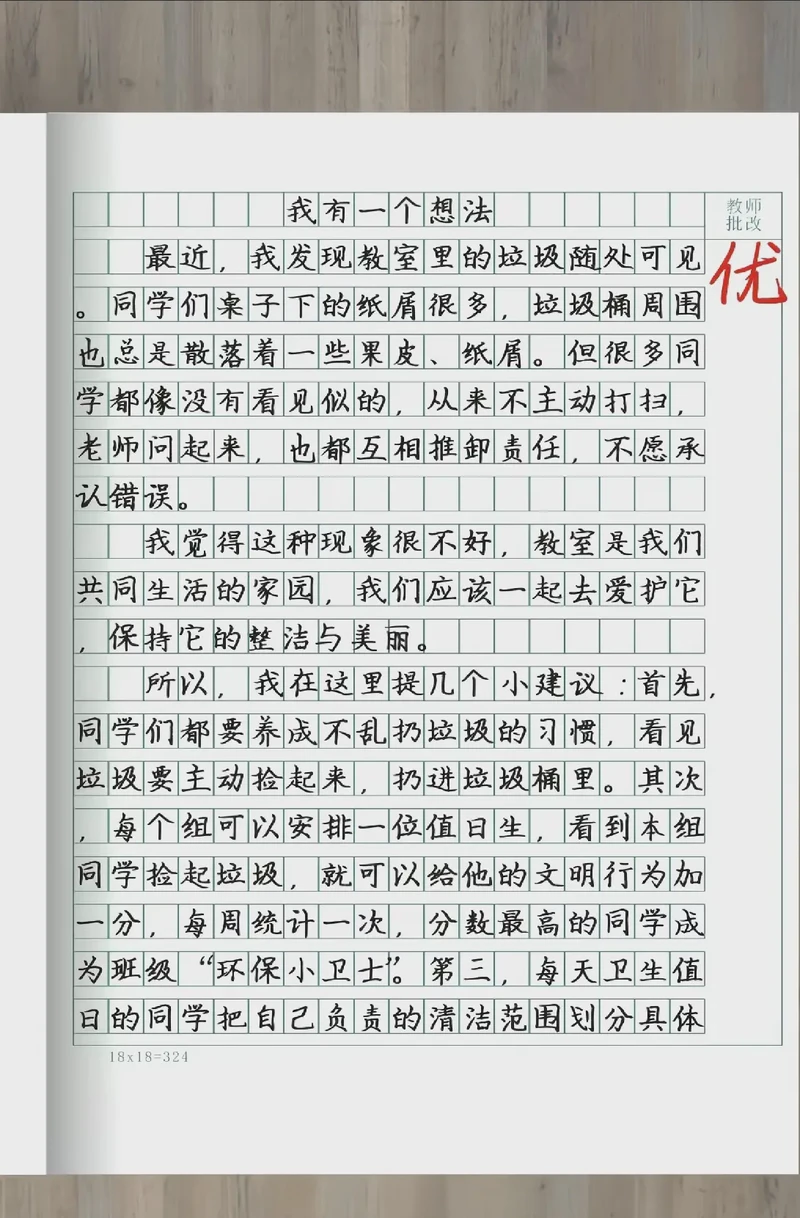 我有一个想法
教师
批改
优
最近，我发现教室里的垃圾随处可见
。同学们桌子下的纸屑很多，垃圾桶周围
也总是散落着一些果皮、纸屑。但很多同
学都像没有看见似的，从来不主动打扫，
老师问起来，也都互相推卸责任，不愿承
认错误。
我觉得这种现象很不好，教室是我们
共同生活的家园，我们应该一起去爱护它
，保持它的整洁与美丽。
所以，我在这里提几个小建议：首先，
同学们都要养成不乱扔垃圾的习惯，看见
垃圾要主动捡起来，扔进垃圾桶里。其次
，每个组可以安排一位值日生，看到本组
同学捡起垃圾，就可以给他的文明行为加
一分，每周统计一次，分数最高的同学成
为班级“环保小卫士”。第三，每天卫生值
日的同学把自己负责的清洁范围划分具体
18x18=324